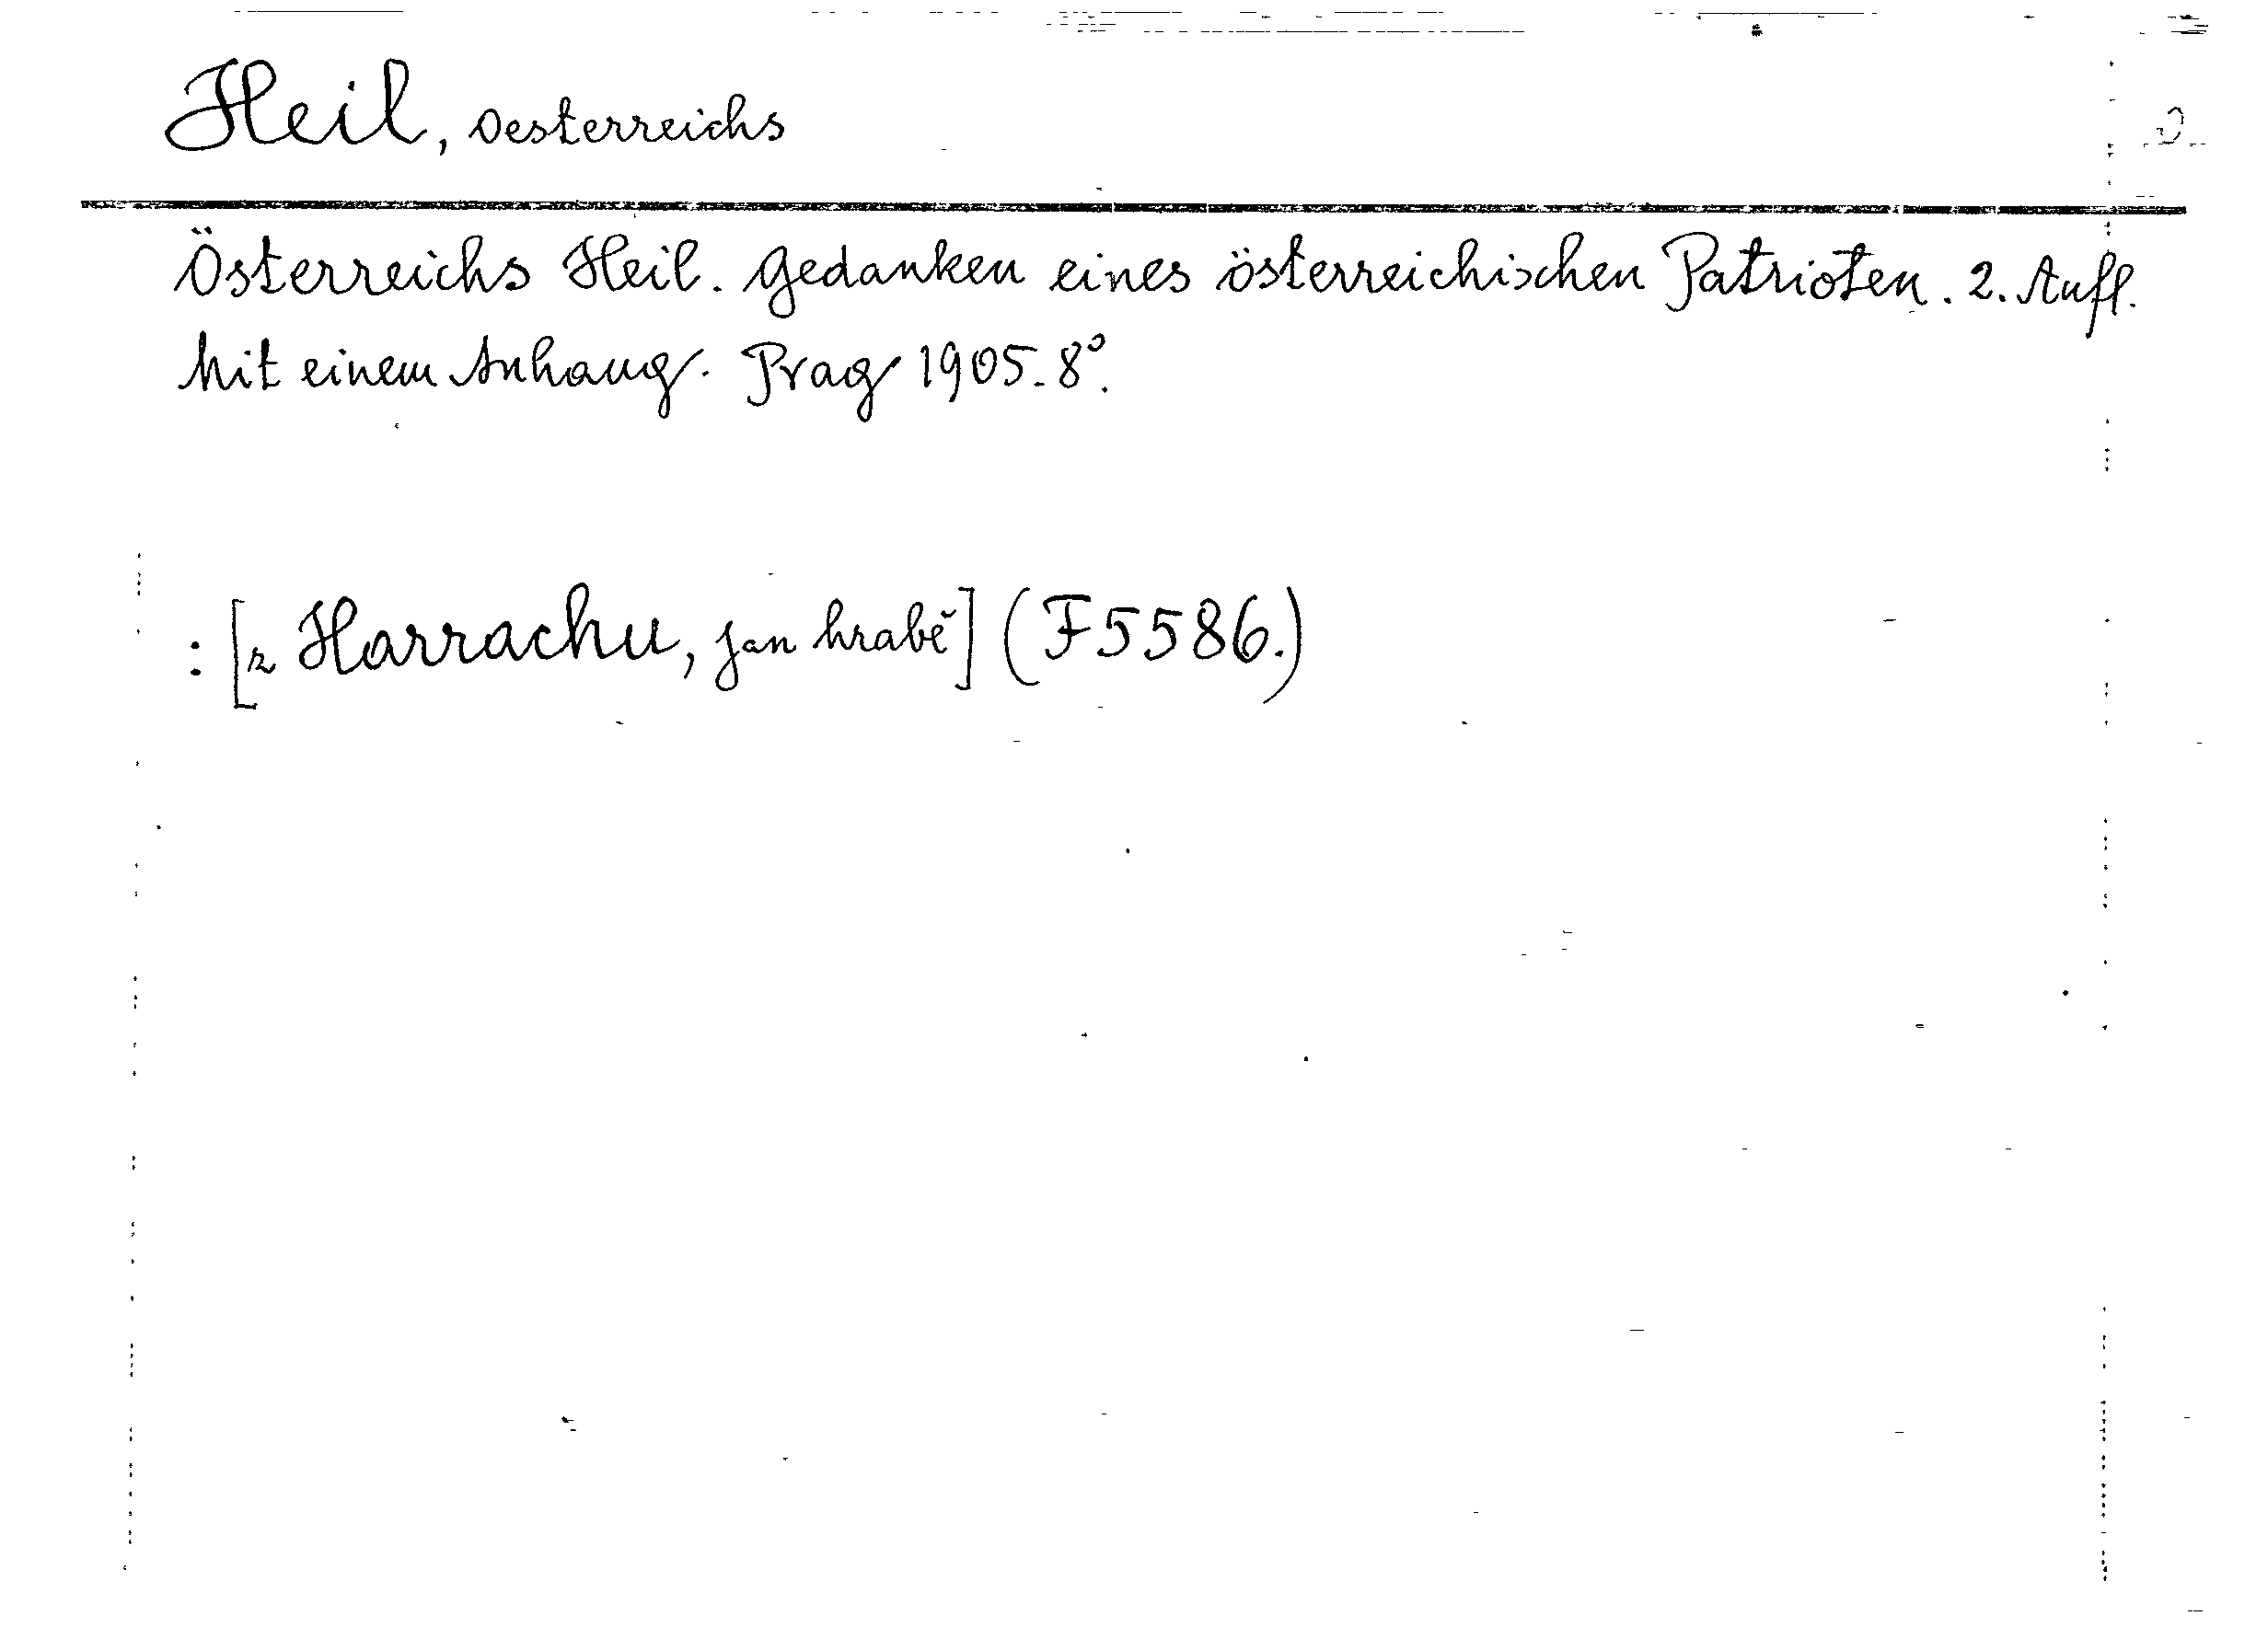 Heil, Oesterreichs
Österreichs Heil. Gedanken eines österreichischen Patrioten. 2. Aufl.
Mit einem Anhang. Prag 1905. 8°.
: [z Harrachu, Jan hrabě] (F 5586.)